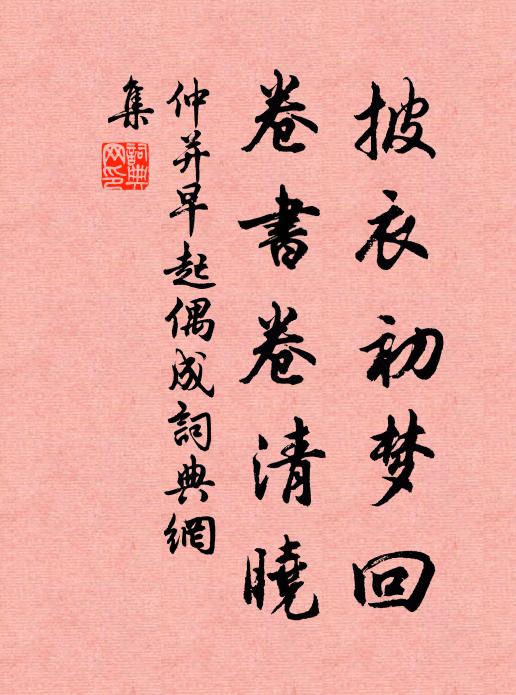 披衣初梦回
卷書卷清曉
仲并早起偶成詞典網
集
詞典
网印